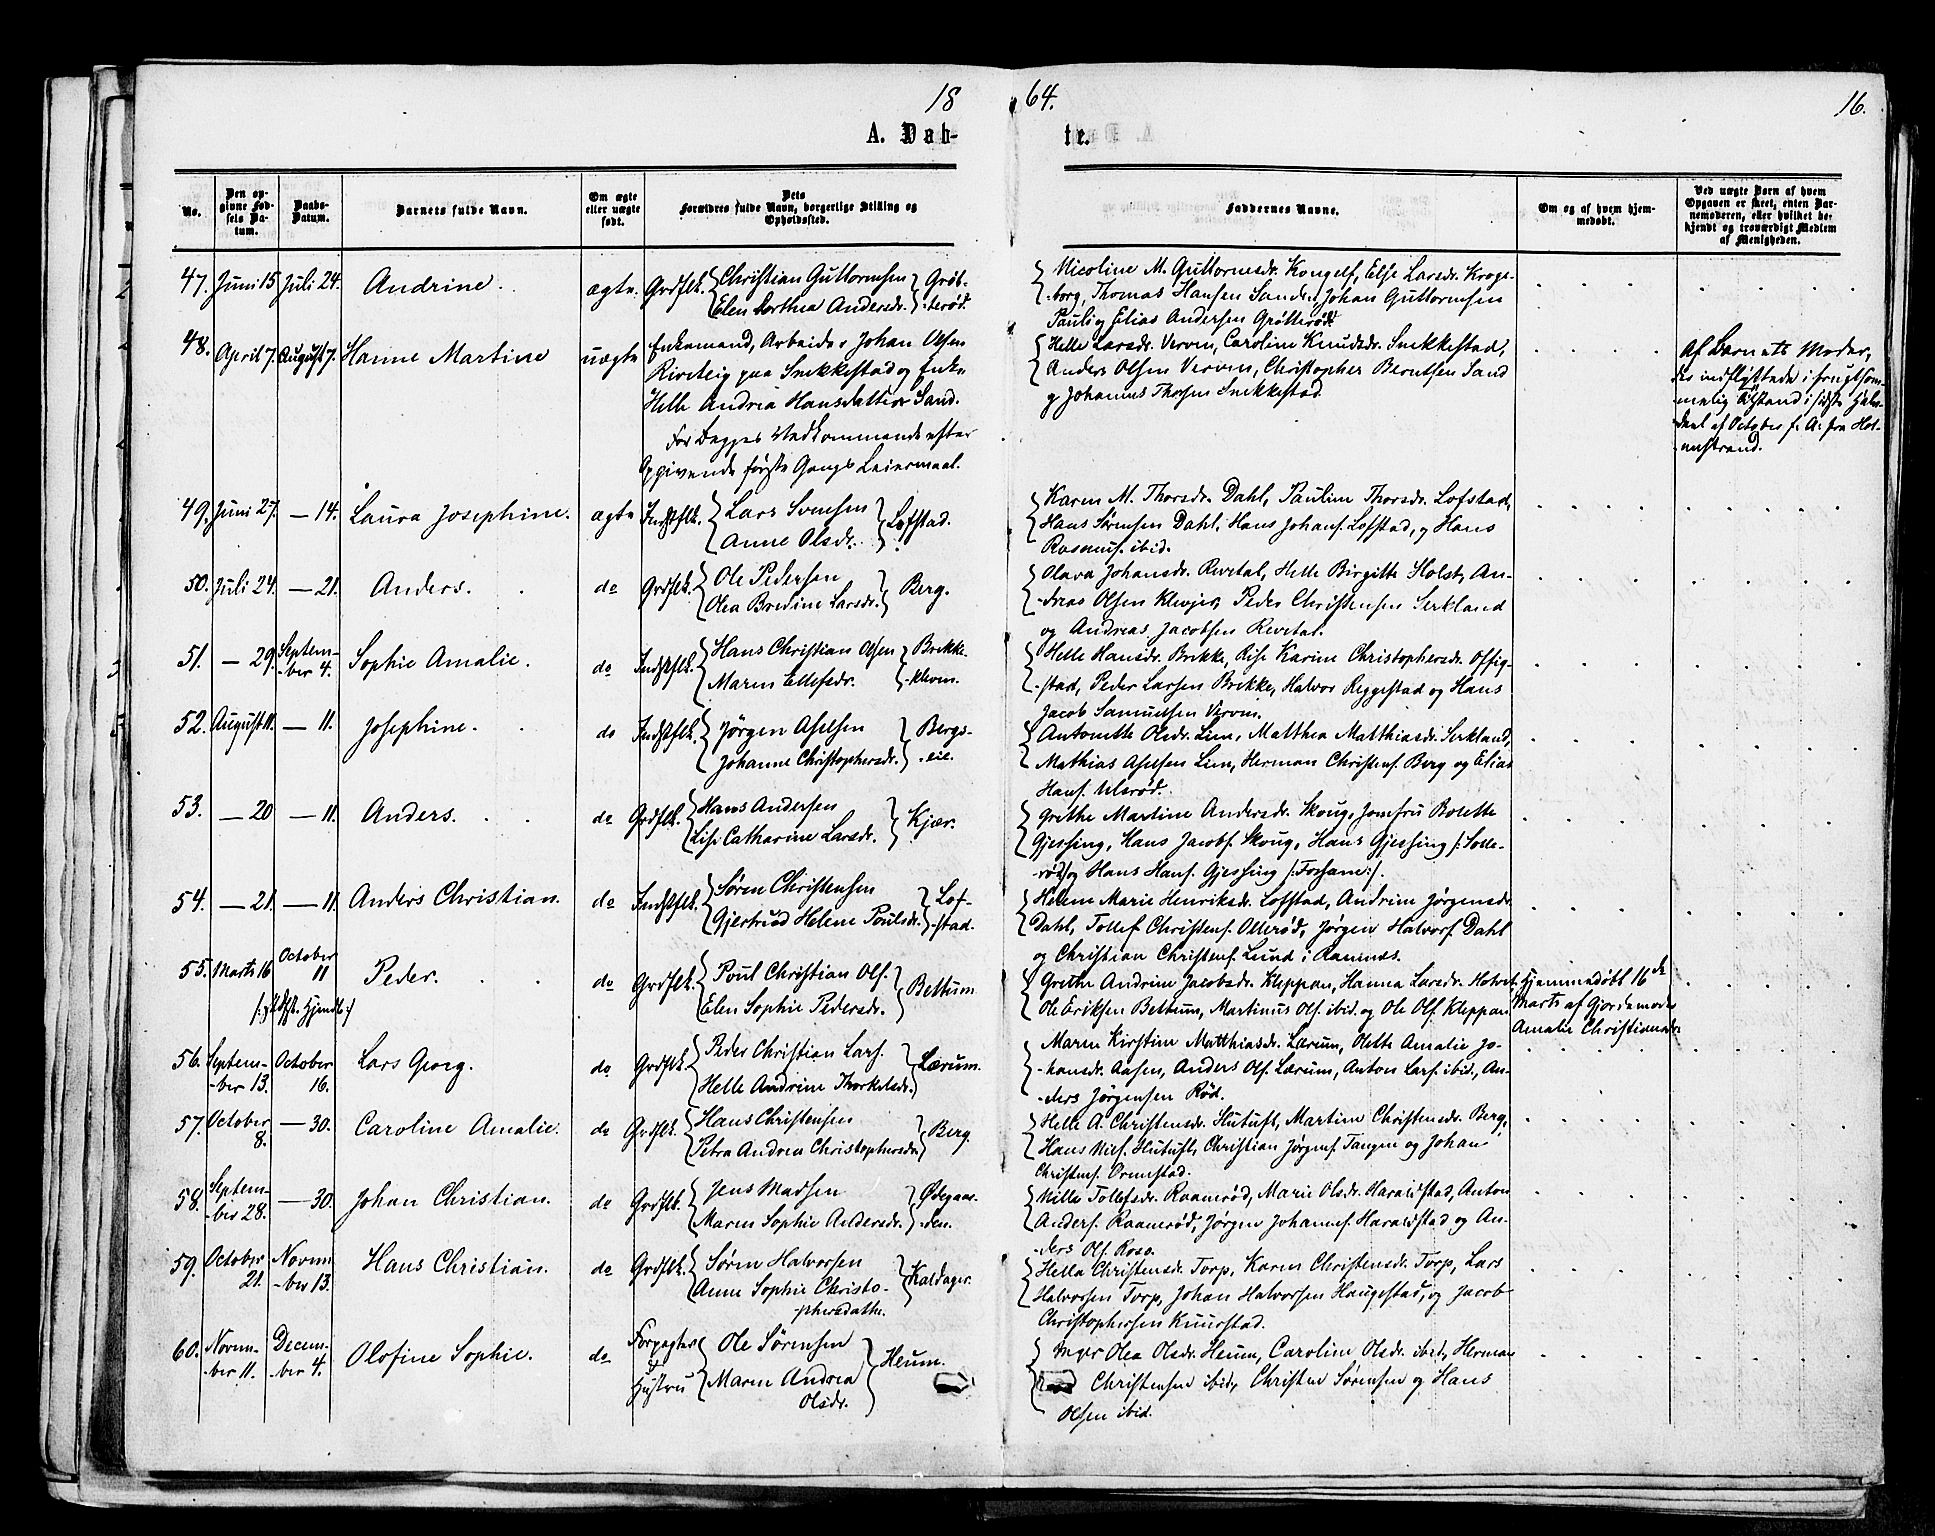 18 64. 16.
A. Døb- te.
No.
Den op-
givne Fød-
sels Da-
tum.
Daabs-
Datum.
Barnets fulde Navn.
Om ægte
eller uægte
født.
Dets
Forældres fulde Navn, borgerlige Stilling og
Opholdssted.
Faddernes Navne.
Om og af hvem hjem-
medøbt.
Ved uægte Børn af hvem
Opgaven er skeet, enten Bar-
nemoderen, eller hvilket be-
kjendt og troværdigt Medlem
af Menigheden.
47. Juni 15 Juli 24. Andrine. ægte. Grdflk. Christian Guttormsen
Elen Dorthea Andersdr. Grøt-
-terød.
Nicoline M. Guttormsdr. Kongelf, Else Larsdr. Kroge-
-borg, Thomas Hansen Sande, Johan Guttormsen
Pauli og Elias Andersen Grøtterød.
48. April 7. August 7. Hanne Martine uægte Enkemand, Arbeider Johan Olsen
Rireteig paa Snekkestad og Enke
Helle Andrea Hansdatter Sand.
For Begges Vedkommende efter
Opgivende første Gangs Leiermaal.
Helle Larsdr. Verven, Caroline Knudsdr. Snekkestad,
Anders Olsen Verven, Christopher Berntsen Sand
og Johannes Thorsen Snekkestad.
Af Barnets Moder,
der indflyttede i frugtsom-
melig Tilstand i sidste Halv-
deel af October f. A. fra Hol-
-mestrand.
49. Juni 27. — 14. Laura Josephine. ægte Indstflk. Lars Svensen
Anne Olsdr. Lofstad.
Karen M. Thorsdr. Dahl, Pauline Thorsdr. Lofstad,
Hans Sørensen Dahl, Hans Johans. Lofstad, og Hans
Rasmus. ibid.
50. Juli 24. — 21. Anders. do Grdflk. Ole Pedersen
Olea Bredine Larsdr. Berg.
Olava Johansdr. Revetal, Helle Birgitte Holst, An-
-dreas Olsen Klevjer, Peder Christensen Serkland
og Andreas Jacobsen Revetal.
51. — 29. Septem-
-ber 4. Sophie Amalie. do Indstflk. Hans Christian Olsen
Maren Ellefsdr. Brekke-
-kleven.
Helle Hansdr. Brekke, Lise Karine Christophersdr. Offig-
-stad, Peder Larsen Brekke, Halvor Reggestad og Hans
Jacob Samuelsen Verven.
52. August 11. — 11. Josephine. do Indstflk. Jørgen Aselsen
Johanne Christophersdr. Bergs-
-eie.
Antonette Olsdr. Lien, Matthea Matthiasdr. Serkland,
Mathias Aselsen Lien, Herman Christens. Berg og Elias
Hans. Ulsrød.
53. — 20 — 11. Anders. do Grdflk. Hans Andersen
Lise Catharine Larsdr. Kjær.
Grethe Martine Andersdr. Skoug, Jomfru Bolette
Gjessing, Hans Jacobs. Skoug, Hans Gjessing /: Solle-
-rød/ og Hans Hans. Gjessing /:Forsane:/.
54. — 21. — 11. Anders Christian. do Indstflk. Søren Christensen
Gjertrud Helene Poulsdr. Lof-
-stad.
Helene Marie Henriksdr. Lofstad, Andrine Jørgensdr.
Dahl, Tollef Christens. Ollerød, Jørgen Halvors. Dahl
og Christian Christens. Lund i Ramnæs.
55. Marts 16 October
11
Peder. do Grdflk. Poul Christian Ols.
Elen Sophie Pedersdr. Bettum.
Grethe Andrine Jacobsdr. Kleppan, Hanna Larsdr. Holvet,
Ole Eriksen Bettum, Martinus Ols. ibid. og Ole Ols. Kleppan
Hjemmedøbt 16de
Marts af Gjordemoder
Amalie Christiansdr.
56. Septem-
-ber 13. October
16. Lars Georg. do Grdflk. Peder Christian Lars.
Helle Andrine Thorkelsdr. Lærum.
Maren Kirstine Matthiasdr. Lærum, Olette Amalie Jo-
-hansdr. Aasen, Anders Ols. Lærum, Anton Lars. ibid., An-
-ders Jørgensen Rød.
57. October
8. — 30. Caroline Amalie. do Grdflk. Hans Christensen
Petra Andrea Christophersdr. Berg.
Helle A. Christensdr. Hutuft, Martine Christensdr. Berg,
Hans Niels. Hutuft, Christian Jørgens. Tangen og Johan
Christens. Ormestad.
58. Septem-
-ber 28. — 30. Johan Christian. do Grdflk. Jens Madsen
Maren Sophie Andersdr. Ødegaar-
-den.
Nille Tollefsdr. Raanerød, Marie Olsdr. Haraldstad, Anton
Anders. Raanerød, Jørgen Johannes. Haraldstad og An-
-ders Ols. Roso.
59. October
21. Novem-
-ber 13. Hans Christian. do Grdflk. Søren Halvorsen
Anne Sophie Christo-
-phersdatter. Kaldager.
Hella Christensdr. Torp, Karen Christensdr. Torp, Lars
Halvorsen Torp, Johan Halvorsen Haugestad, og Jacob
Christophersen Knurstad.
60. Novem-
-ber 11. Decem-
-ber 4. Olofine Sophie. do Forpagter
Hustru Ole Sørensen
Maren Andrea
Olsdr. Heum.
Inger Olea Olsdr. Heum, Caroline Olsdr. ibid, Herman
Christensen ibid, Christen Sørensen og Hans
Olsen ibid.